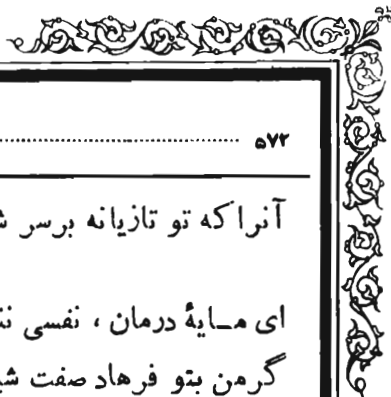 ۵۷۲
آنرا که تو تازیانه برسر
ای مـایهٔ درمان ، نفسی
گرمن بتو فرهاد صفت